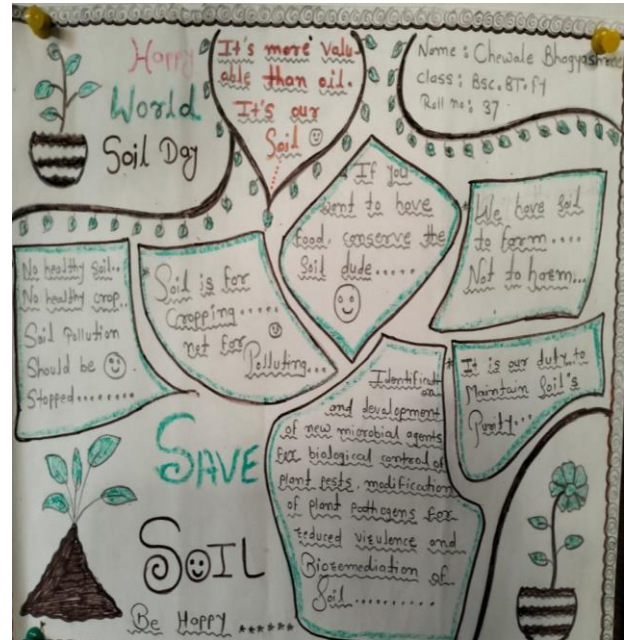 Happy
World
Soil Day
It's more valu-
able than oil.
It's our
Soil
Name : Chewale Bhagyashree
Class : Bsc.BT.FY
Roll no : 37
If you
want to have
food, conserve the
Soil dude......
We have soil
to farm....
Not to harm...
No healthy soil..
No healthy crop..
Soil Pollution
Should be
Stopped........
Soil is for
Cropping.....
not for
Polluting...
It is our duty to
Maintain Soil's
Purity...
Identificati
on
and development
of new microbial agents
for biological control of
plant pests, modification
of plant pathogens for
reduced virulence and
Bioremediation of
Soil..........
SAVE
SOIL
Be Happy ******